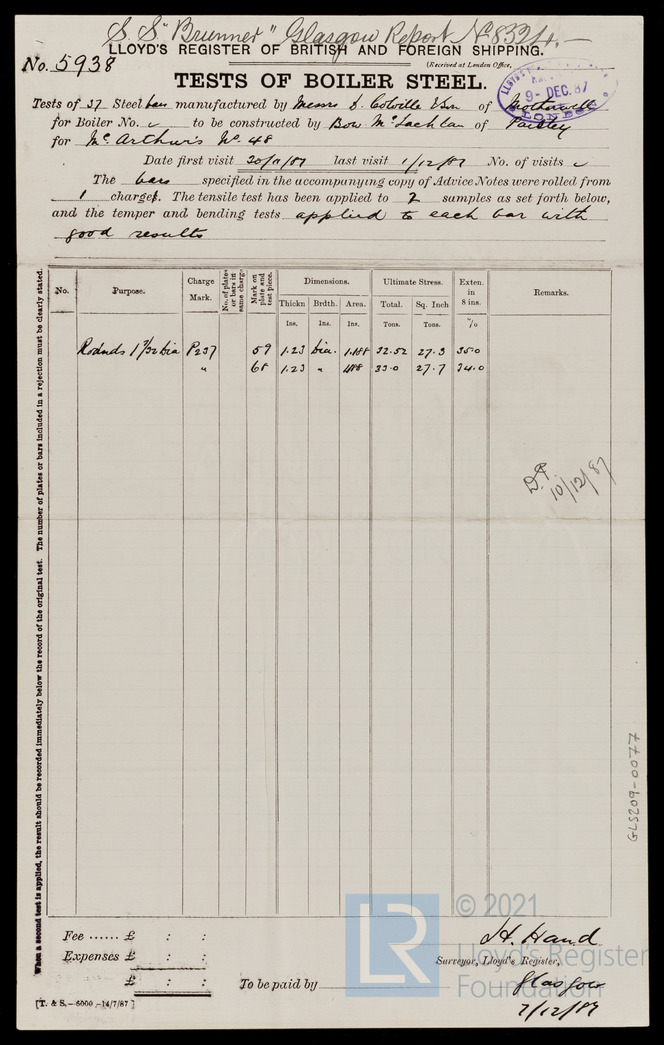 S.S "Brunner" Glasgow Report No 8324.
LLOYD'S REGISTER OF BRITISH AND FOREIGN SHIPPING.
No. 5938
(Received at London Office,
TESTS OF BOILER STEEL.
9- DEC. 87
LONDON
Tests of 37 Steel bars manufactured by Messrs D. Colville & Son of Motherwell
for Boiler No. to be constructed by Bow McLachlan of Paisley
for McArthur's No. 48
Date first visit 30/11/87 last visit 1/12/87 No. of visits
The bars specified in the accompanying copy of Advice Notes were rolled from
1 charges. The tensile test has been applied to 2 samples as set forth below,
and the temper and bending tests applied to each bar with
good results
No. Purpose. Charge Mark. No. of plates or bars in same charge Mark on plate and test piece. Dimensions. Ultimate Stress. Exten. in 8 ins. Remarks.
Thickn Brdth. Area. Total. Sq. Inch
Ins. Ins. Ins. Tons. Tons. %
Rounds 1 7/32 dia P237 59 1.23 dia. 1.188 32.52 27.3 35.0
" 68 1.23 " 1.188 33.0 27.7 34.0
10/12/87
When a second test is applied, the result should be recorded immediately below the record of the original test. The number of plates or bars included in a rejection must be clearly stated.
GLS209-0077
Fee ...... £ : :
Expenses £ : :
£ : :
To be paid by
H. Hand
Surveyor, Lloyd's Register,
Glasgow
7/12/87
[T. & S.—6000.—14/7/87]
© 2021
LR
Lloyd's Register
Foundation